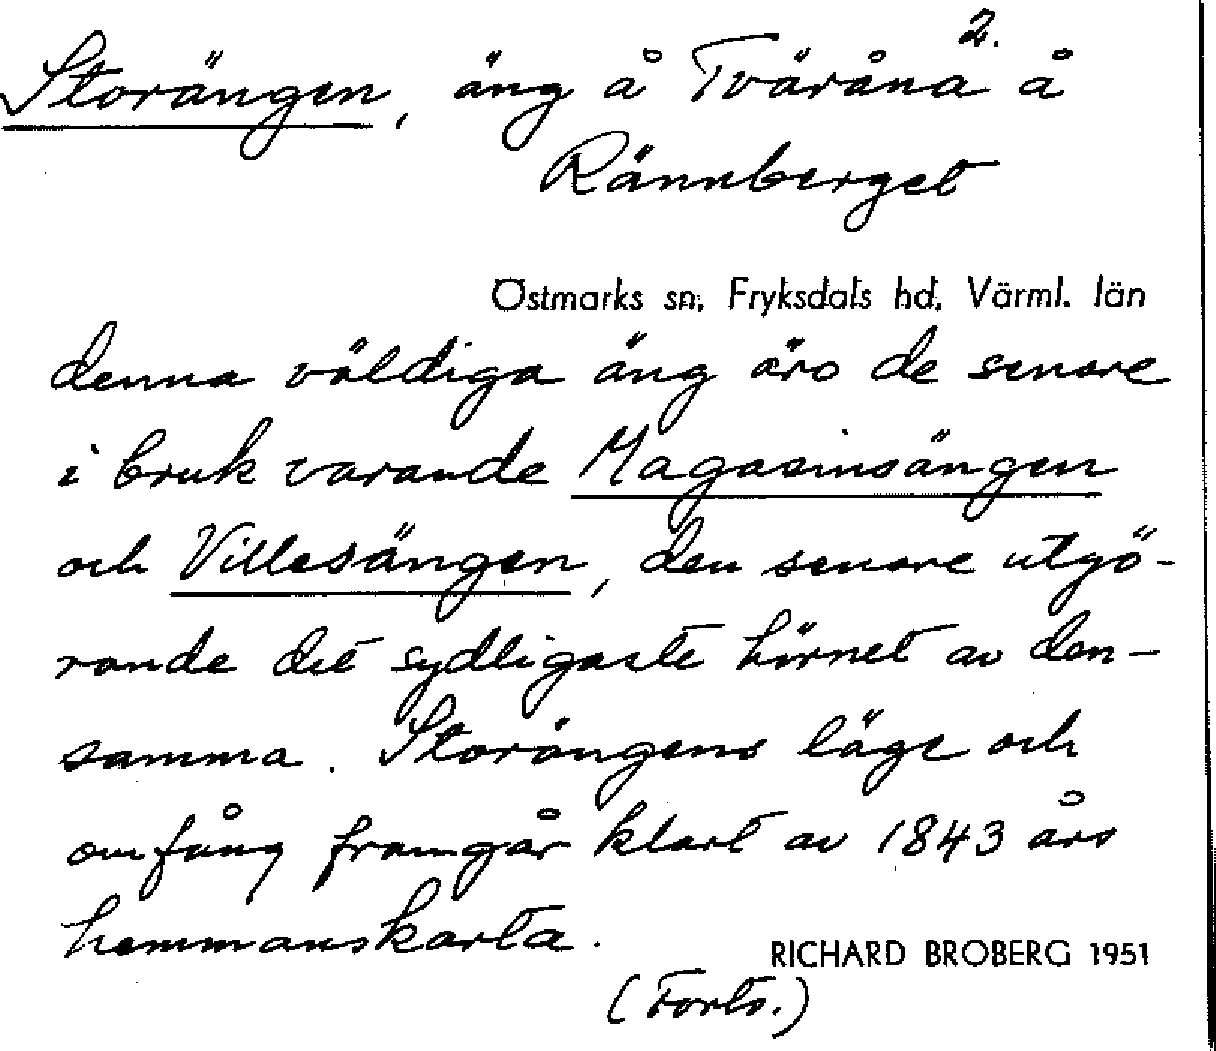 2.
Storängen, äng å Tväråna å
Rännberget
Östmarks sn, Fryksdals hd, Värml. län
denna väldiga äng äro de senare
i bruk varande Magasinsängen
och Villesängen, den senare utgö-
rande det sydligaste hörnet av den-
samma. Storängens läge och
omfång framgår klart av 1843 års
hemmanskarta.
RICHARD BROBERG 1951
(Forts.)